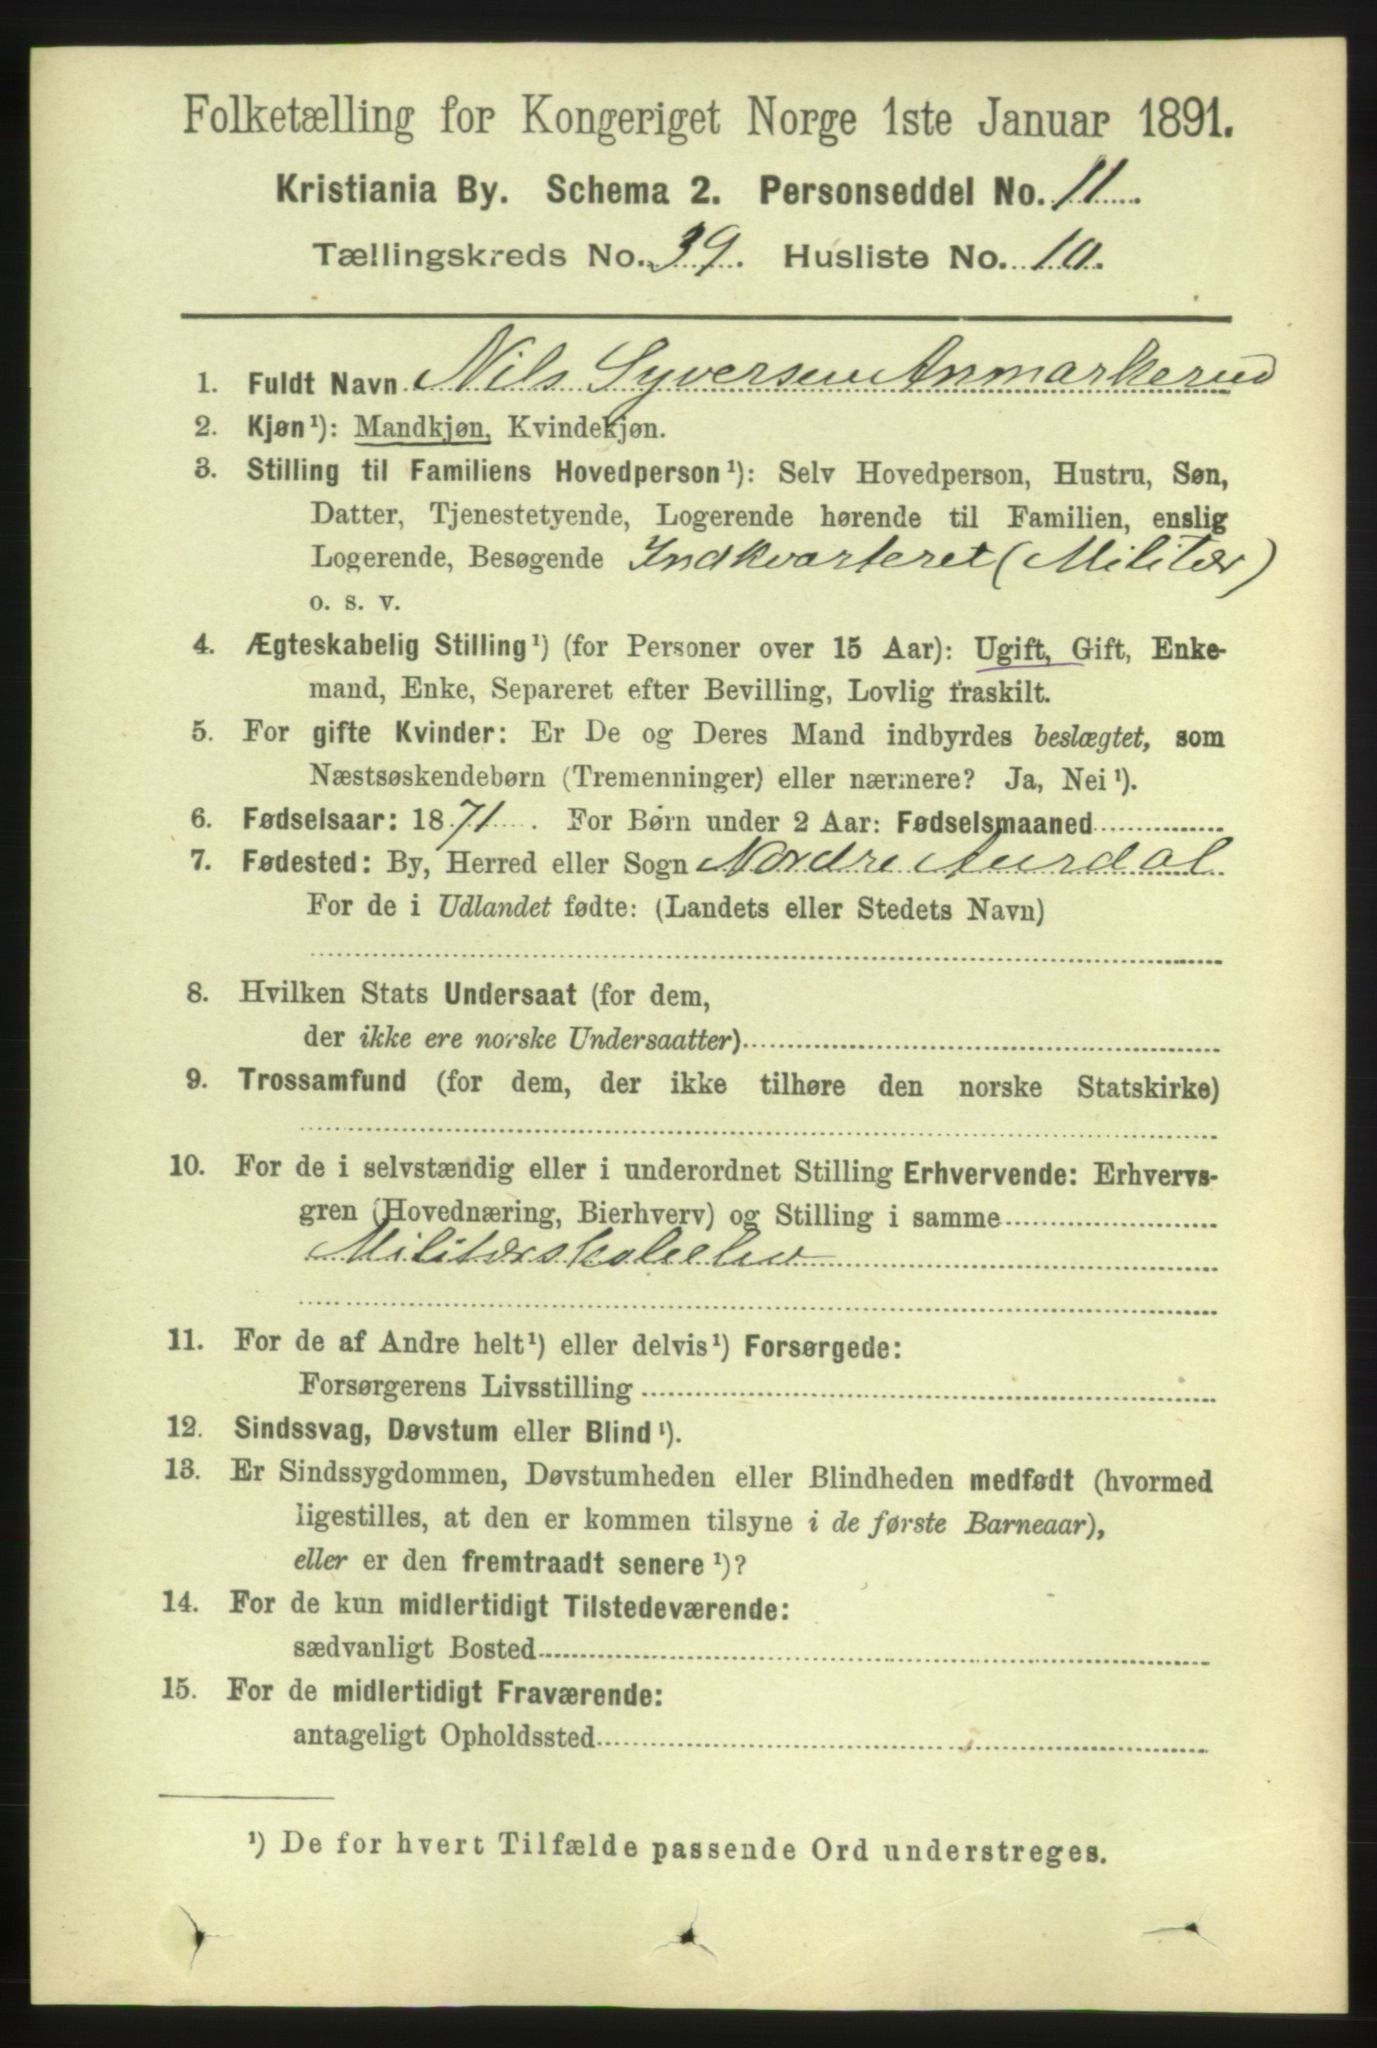 Folketælling for Kongeriget Norge 1ste Januar 1891.
Kristiania By. Schema 2. Personseddel No. 11
Tællingskreds No. 39. Husliste No. 10.
1. Fuldt Navn Nils Syversen Anmarkerud
2. Kjøn¹): Mandkjøn, Kvindekjøn.
3. Stilling til Familiens Hovedperson¹): Selv Hovedperson, Hustru, Søn,
Datter, Tjenestetyende, Logerende hørende til Familien, enslig
Logerende, Besøgende Indkvarteret (Militær)
o. s. v.
4. Ægteskabelig Stilling¹) (for Personer over 15 Aar): Ugift, Gift, Enke-
mand, Enke, Separeret efter Bevilling, Lovlig fraskilt.
5. For gifte Kvinder: Er De og Deres Mand indbyrdes beslægtet, som
Næstsøskendebørn (Tremenninger) eller nærmere? Ja, Nei¹).
6. Fødselsaar: 1871. For Børn under 2 Aar: Fødselsmaaned
7. Fødested: By, Herred eller Sogn Nordre Aurdal
For de i Udlandet fødte: (Landets eller Stedets Navn)
8. Hvilken Stats Undersaat (for dem,
der ikke ere norske Undersaatter)
9. Trossamfund (for dem, der ikke tilhøre den norske Statskirke)
10. For de i selvstændig eller i underordnet Stilling Erhvervende: Erhvervs-
gren (Hovednæring, Bierhverv) og Stilling i samme
Militærskoleelev
11. For de af Andre helt¹) eller delvis¹) Forsørgede:
Forsørgerens Livsstilling
12. Sindssvag, Døvstum eller Blind¹).
13. Er Sindssygdommen, Døvstumheden eller Blindheden medfødt (hvormed
ligestilles, at den er kommen tilsyne i de første Barneaar),
eller er den fremtraadt senere¹)?
14. For de kun midlertidigt Tilstedeværende:
sædvanligt Bosted
15. For de midlertidigt Fraværende:
antageligt Opholdssted
¹) De for hvert Tilfælde passende Ord understreges.